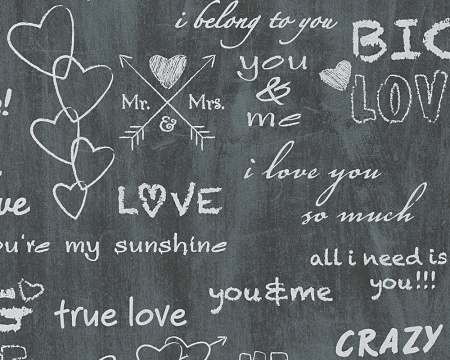 i belong to you
BIG
LOV
you
&
me
Mr. Mrs.
&
i love you
so much
LOVE
ou're my sunshine
all i need is
you!!!
you&me
true love
CRAZY